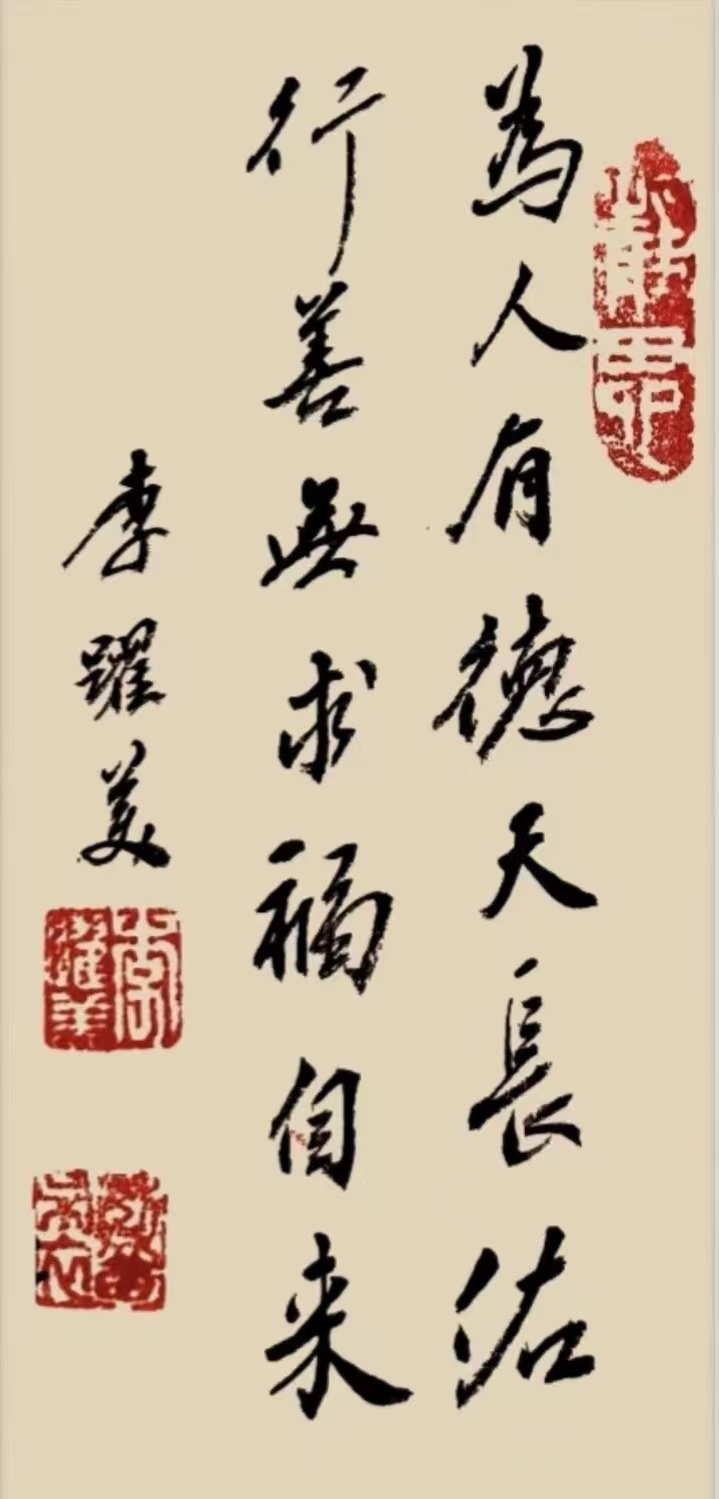 為人有德天長佑
行善無求福自来
李躍美
李躍美